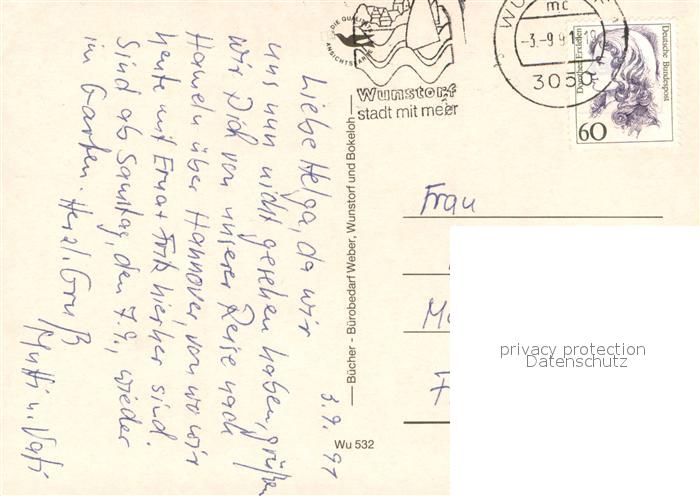 3.9.91
Liebe Helga, da wir
uns nun nicht gesehen haben, grüßen
wir Dich von unserer Reise nach
Hameln über Hannover, von wo wir
heute mit Erna + Fritz hierher sind.
Sind ab Samstag, den 7.9., wieder
im Garten. Herzl. Gruß
Mutti u. Vati
DIE QUALITÄTS
ANSICHTSKARTE
Wunstorf
stadt mit meer
WU
mc
-3.-9.91-19
3050
Dorothea Erxleben
Deutsche Bundespost
60
Bücher - Bürobedarf Weber, Wunstorf und Bokeloh
Wu 532
Frau
privacy protection
Datenschutz